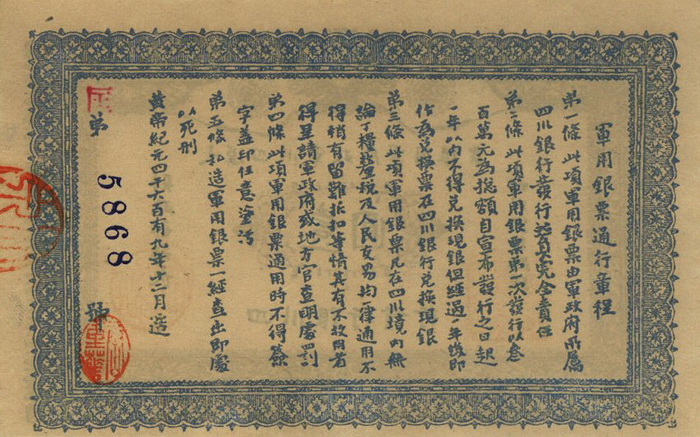 軍用銀票通行章程
第一條 此項軍用銀票由軍政府所屬
四川銀行發行並負完全責任
第二條 此項軍用銀票第一次發行以叁
百萬元為總額自宣布發行之日起
一年以內不得兌換現銀但經過一年後即
作為兌換票在四川銀行兌換現銀
第三條 此項軍用銀票凡在四川境內無
論丁糧釐稅及人民交易均一律通用不
得稍有留難折扣等情其有不收用者
得呈請軍政府或地方官查明處罰
第四條 此項軍用銀票通用時不得簽
字蓋印任意塗污
第五條 私造軍用銀票一經查出即處
以死刑
黃帝紀元四千六百有九年十二月造
第 5868 號